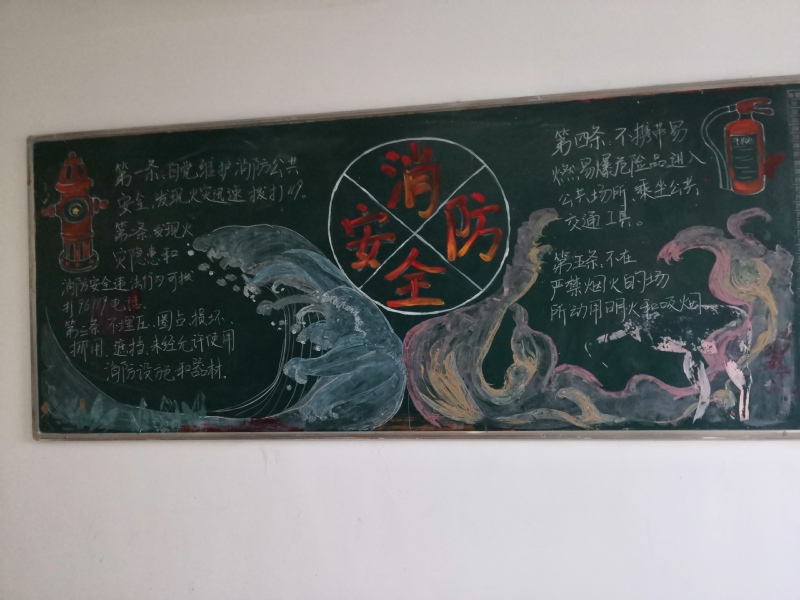 第一条、自觉维护消防公共
安全，发现火灾迅速拨打119。
第二条、发现火
灾隐患和
消防安全违法行为可拨
打96119电话。
第三条、不埋压、圈占、损坏、
挪用、遮挡、未经允许使用
消防设施和器材。
消
安 防
全
第四条、不携带易
燃易爆危险品进入
公共场所、乘坐公共
交通工具。
第五条、不在
严禁烟火的场
所动用明火和吸烟